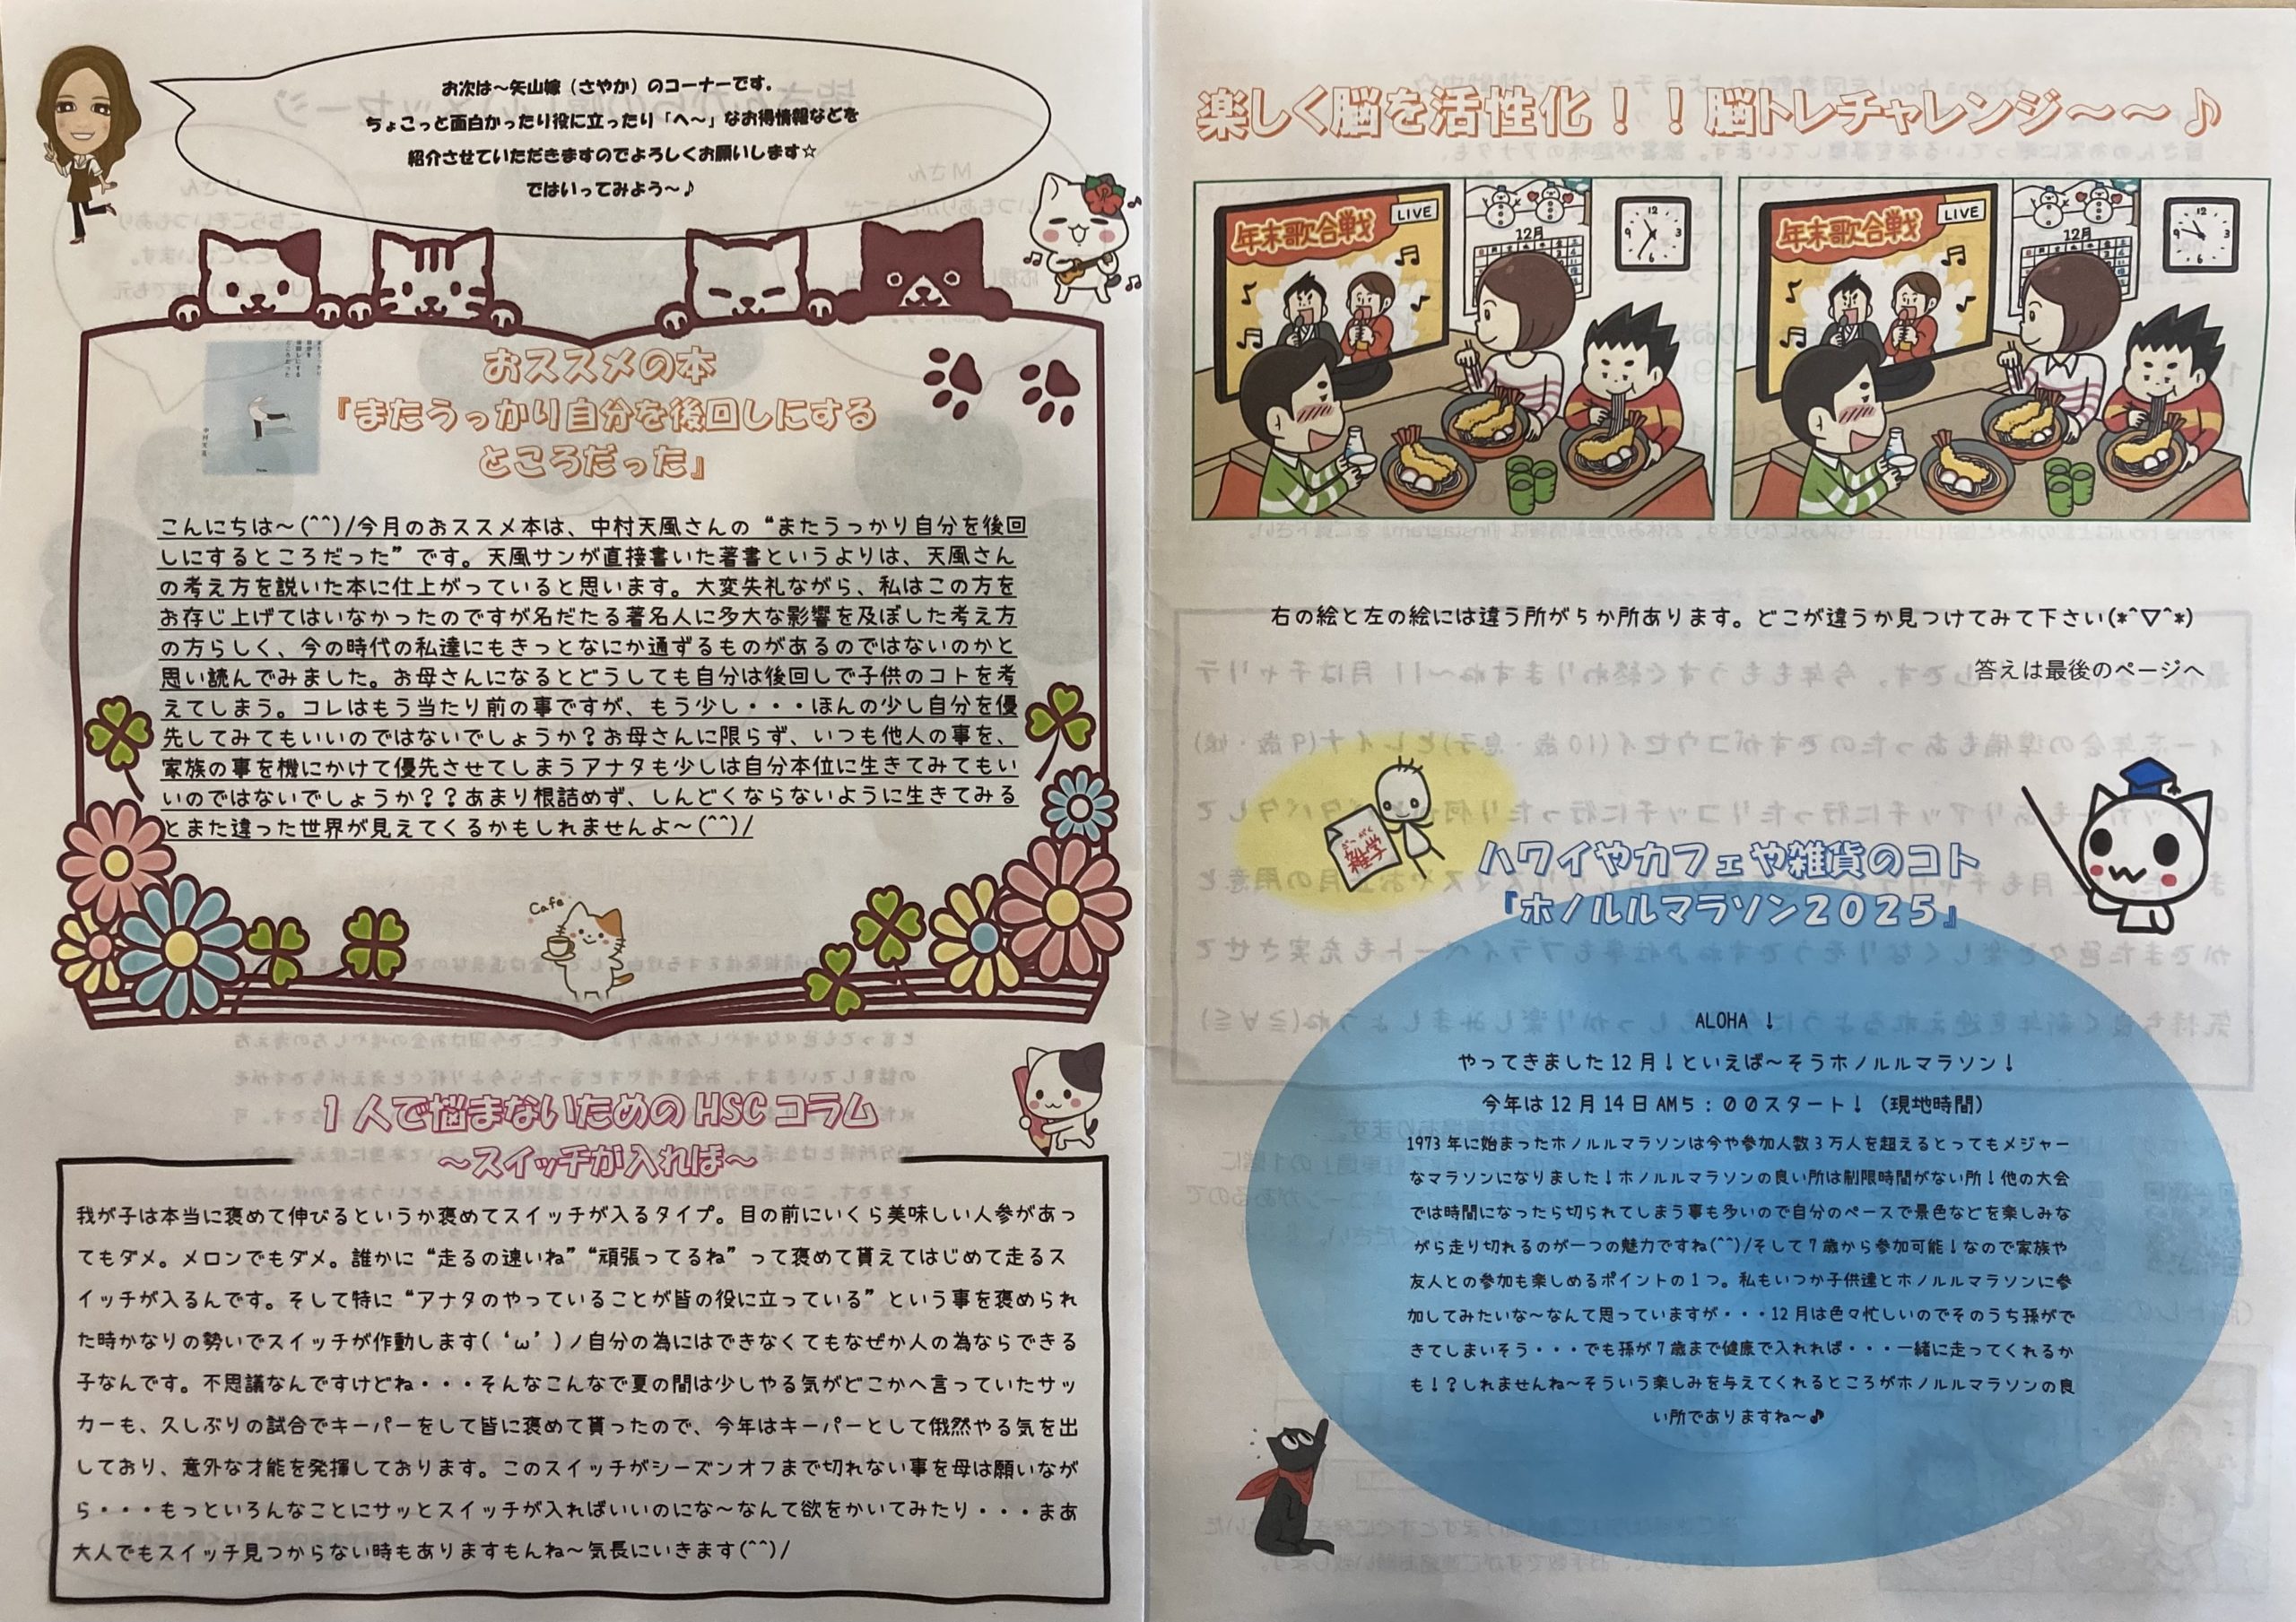 お次は～矢山嫁（さやか）のコーナーです。
ちょこっと面白かったり役に立ったり「へ～」なお得情報などを
紹介させていただきますのでよろしくお願いします☆
ではいってみよう～♪
おススメの本
『またうっかり自分を後回しにする
ところだった』
こんにちは～(^^)/今月のおススメ本は、中村天風さんの“またうっかり自分を後回
しにするところだった”です。天風サンが直接書いた著書というよりは、天風さん
の考え方を説いた本に仕上がっていると思います。大変失礼ながら、私はこの方を
お存じ上げてはいなかったのですが名だたる著名人に多大な影響を及ぼした考え方
の方らしく、今の時代の私達にもきっとなにか通ずるものがあるのではないのかと
思い読んでみました。お母さんになるとどうしても自分は後回しで子供のコトを考
えてしまう。コレはもう当たり前の事ですが、もう少し・・・ほんの少し自分を優
先してみてもいいのではないでしょうか？お母さんに限らず、いつも他人の事を、
家族の事を機にかけて優先させてしまうアナタも少しは自分本位に生きてみてもい
いのではないでしょうか？？あまり根詰めず、しんどくならないように生きてみる
とまた違った世界が見えてくるかもしれませんよ～(^^)/
Cafe
１人で悩まないためのHSCコラム
～スイッチが入れば～
我が子は本当に褒めて伸びるというか褒めてスイッチが入るタイプ。目の前にいくら美味しい人参があっ
てもダメ。メロンでもダメ。誰かに“走るの速いね”“頑張ってるね”って褒めて貰えてはじめて走るス
イッチが入るんです。そして特に“アナタのやっていることが皆の役に立っている”という事を褒められ
た時かなりの勢いでスイッチが作動します( ‘ω’ )ノ自分の為にはできなくてもなぜか人の為ならできる
子なんです。不思議なんですけどね・・・そんなこんなで夏の間は少しやる気がどこかへ言っていたサッ
カーも、久しぶりの試合でキーパーをして皆に褒めて貰ったので、今年はキーパーとして俄然やる気を出
しており、意外な才能を発揮しております。このスイッチがシーズンオフまで切れない事を母は願いなが
ら・・・もっといろんなことにサッとスイッチが入ればいいのにな～なんて欲をかいてみたり・・・まあ
大人でもスイッチ見つからない時もありますもんね～気長にいきます(^^)/
楽しく脳を活性化！！脳トレチャレンジ～～♪
年末歌合戦
LIVE
12月
12
3
6
9
年末歌合戦
LIVE
12月
12
3
6
9
右の絵と左の絵には違う所が５か所あります。どこが違うか見つけてみて下さい(*^▽^*)
答えは最後のページへ
ざつがく
雑学
ハワイやカフェや雑貨のコト
『ホノルルマラソン２０２５』
ALOHA！
やってきました12月！といえば～そうホノルルマラソン！
今年は12月14日AM５：００スタート！（現地時間）
1973年に始まったホノルルマラソンは今や参加人数３万人を超えるとってもメジャー
なマラソンになりました！ホノルルマラソンの良い所は制限時間がない所！他の大会
では時間になったら切られてしまう事も多いので自分のペースで景色などを楽しみな
がら走り切れるのが一つの魅力ですね(^^)/そして７歳から参加可能！なので家族や
友人との参加も楽しめるポイントの１つ。私もいつか子供達とホノルルマラソンに参
加してみたいな～なんて思っていますが・・・12月は色々忙しいのでそのうち孫がで
きてしまいそう・・・でも孫が７歳まで健康で入れれば・・・一緒に走ってくれるか
も！？しれませんね～そういう楽しみを与えてくれるところがホノルルマラソンの良
い所でありますね～♪